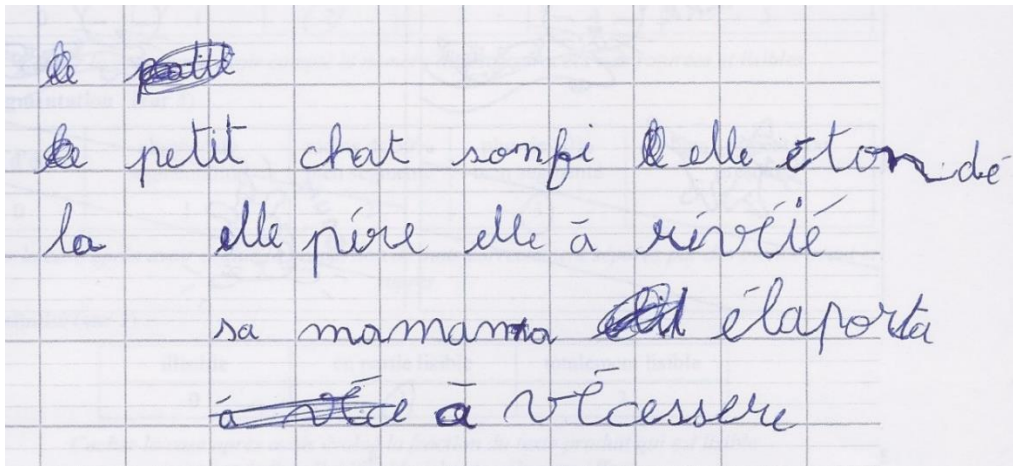 le
le petit chat somfi elle éton dé
la elle pire elle à rivéié
sa mamama élaporta
à vécessere